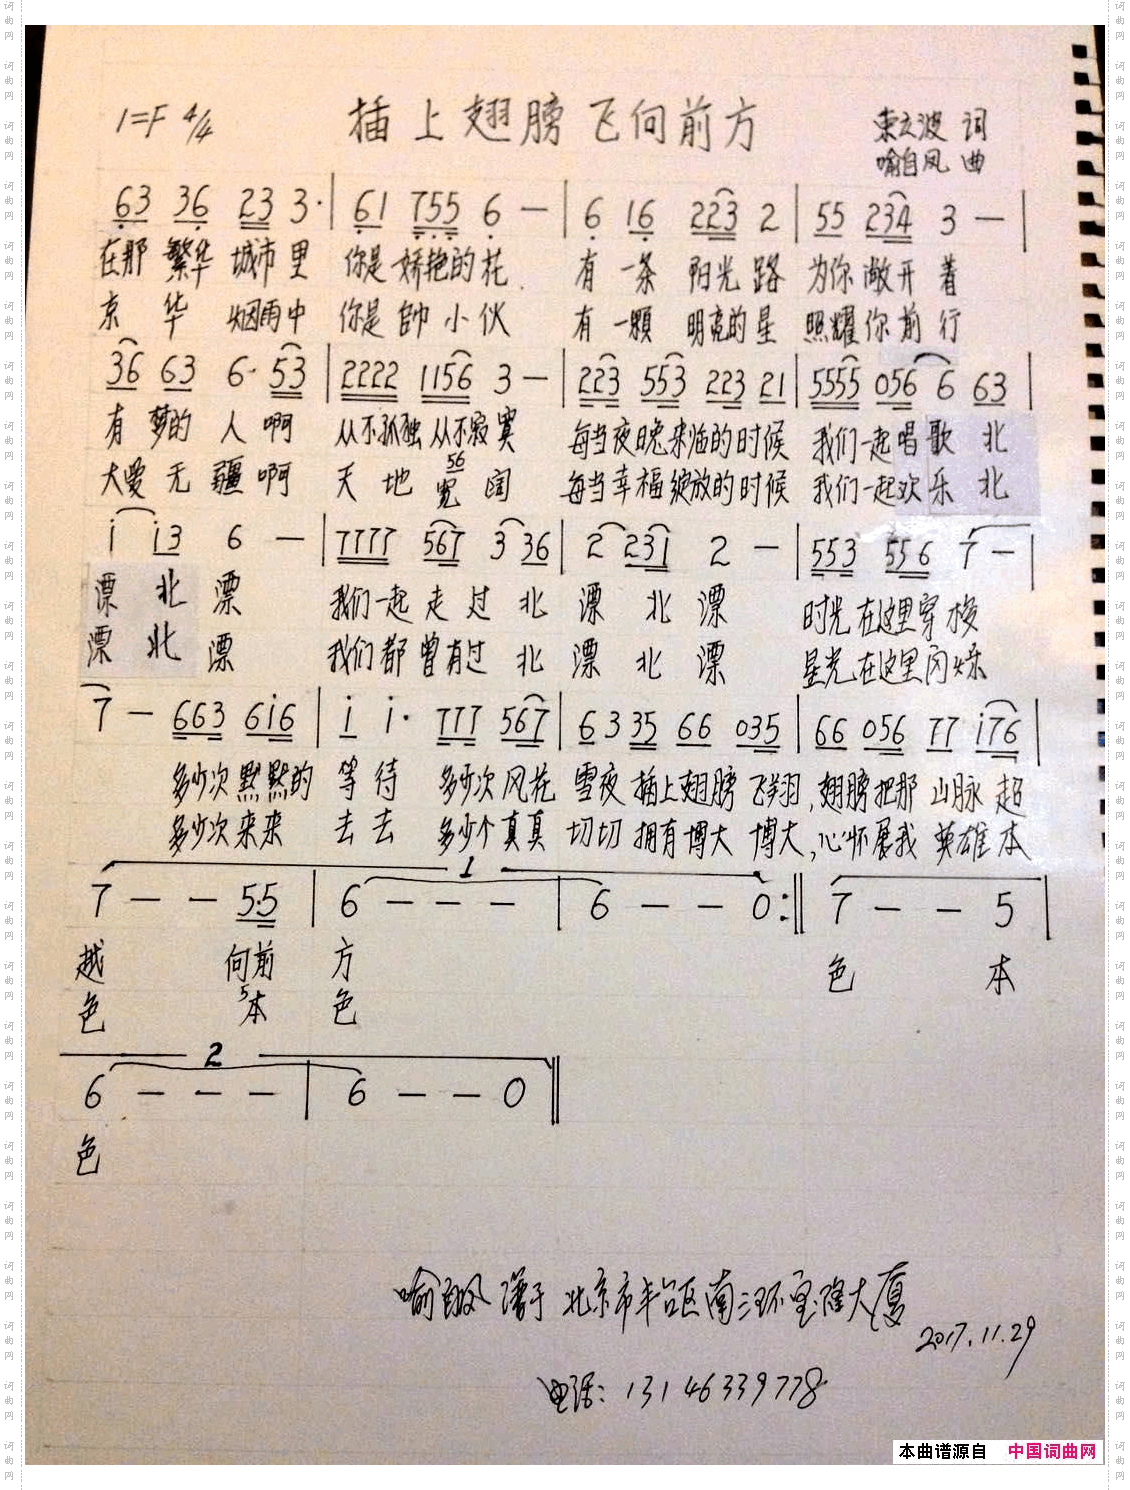 1=F 4/4 插上翅膀飞向前方 词
喻自凤 曲
63 36 23 3· | 61 755 6 — | 6 16 223 2 | 55 234 3 — |
在那 繁华 城市 里 你是 娇艳的 花 有 一条 阳光 路 为你 敞开 着
京 华 烟雨中 你是 帅 小 伙 有 一颗 明亮的 星 照耀 你前 行
36 63 6· 53 | 2222 1156 3 — | 223 553 223 21 | 5555 056 6 63 |
有 梦的 人 啊 从不孤独 从不寂寞 每当夜晚来临的时候 我们一起唱歌 北
56
大爱 无 疆 啊 天 地 宽 阔 每当幸福绽放的时候 我们一起欢乐 北
i i3 6 — | 7777 567 3 36 | 2 231 2 — | 553 556 7 — |
漂 北 漂 我们一起 走 过 北 漂 北 漂 时光在这里穿梭
漂 北 漂 我们都 曾有过 北 漂 北 漂 星光在这里闪烁
7 — 663 6i6 | i i· 777 567 | 6 3 35 66 035 | 66 056 77 i76 |
多少次 默默的 等待 多少次 风花 雪夜 插上翅膀 飞翔,翅膀把那 山脉 超
多少次 来来 去去 多少个 真真 切切 拥有博大 博大,心怀展我 英雄 本
1
7 — — 5·5 | 6 — — — | 6 — — 0 :‖ 7 — — 5 |
越 向前 方 色 本
色 5本 色
2
6 — — — | 6 — — 0 ‖
色
喻自凤 谱于 北京市丰台区南三环宝隆大厦
2017.11.29
电话: 13146339778
本曲谱源自 中国词曲网